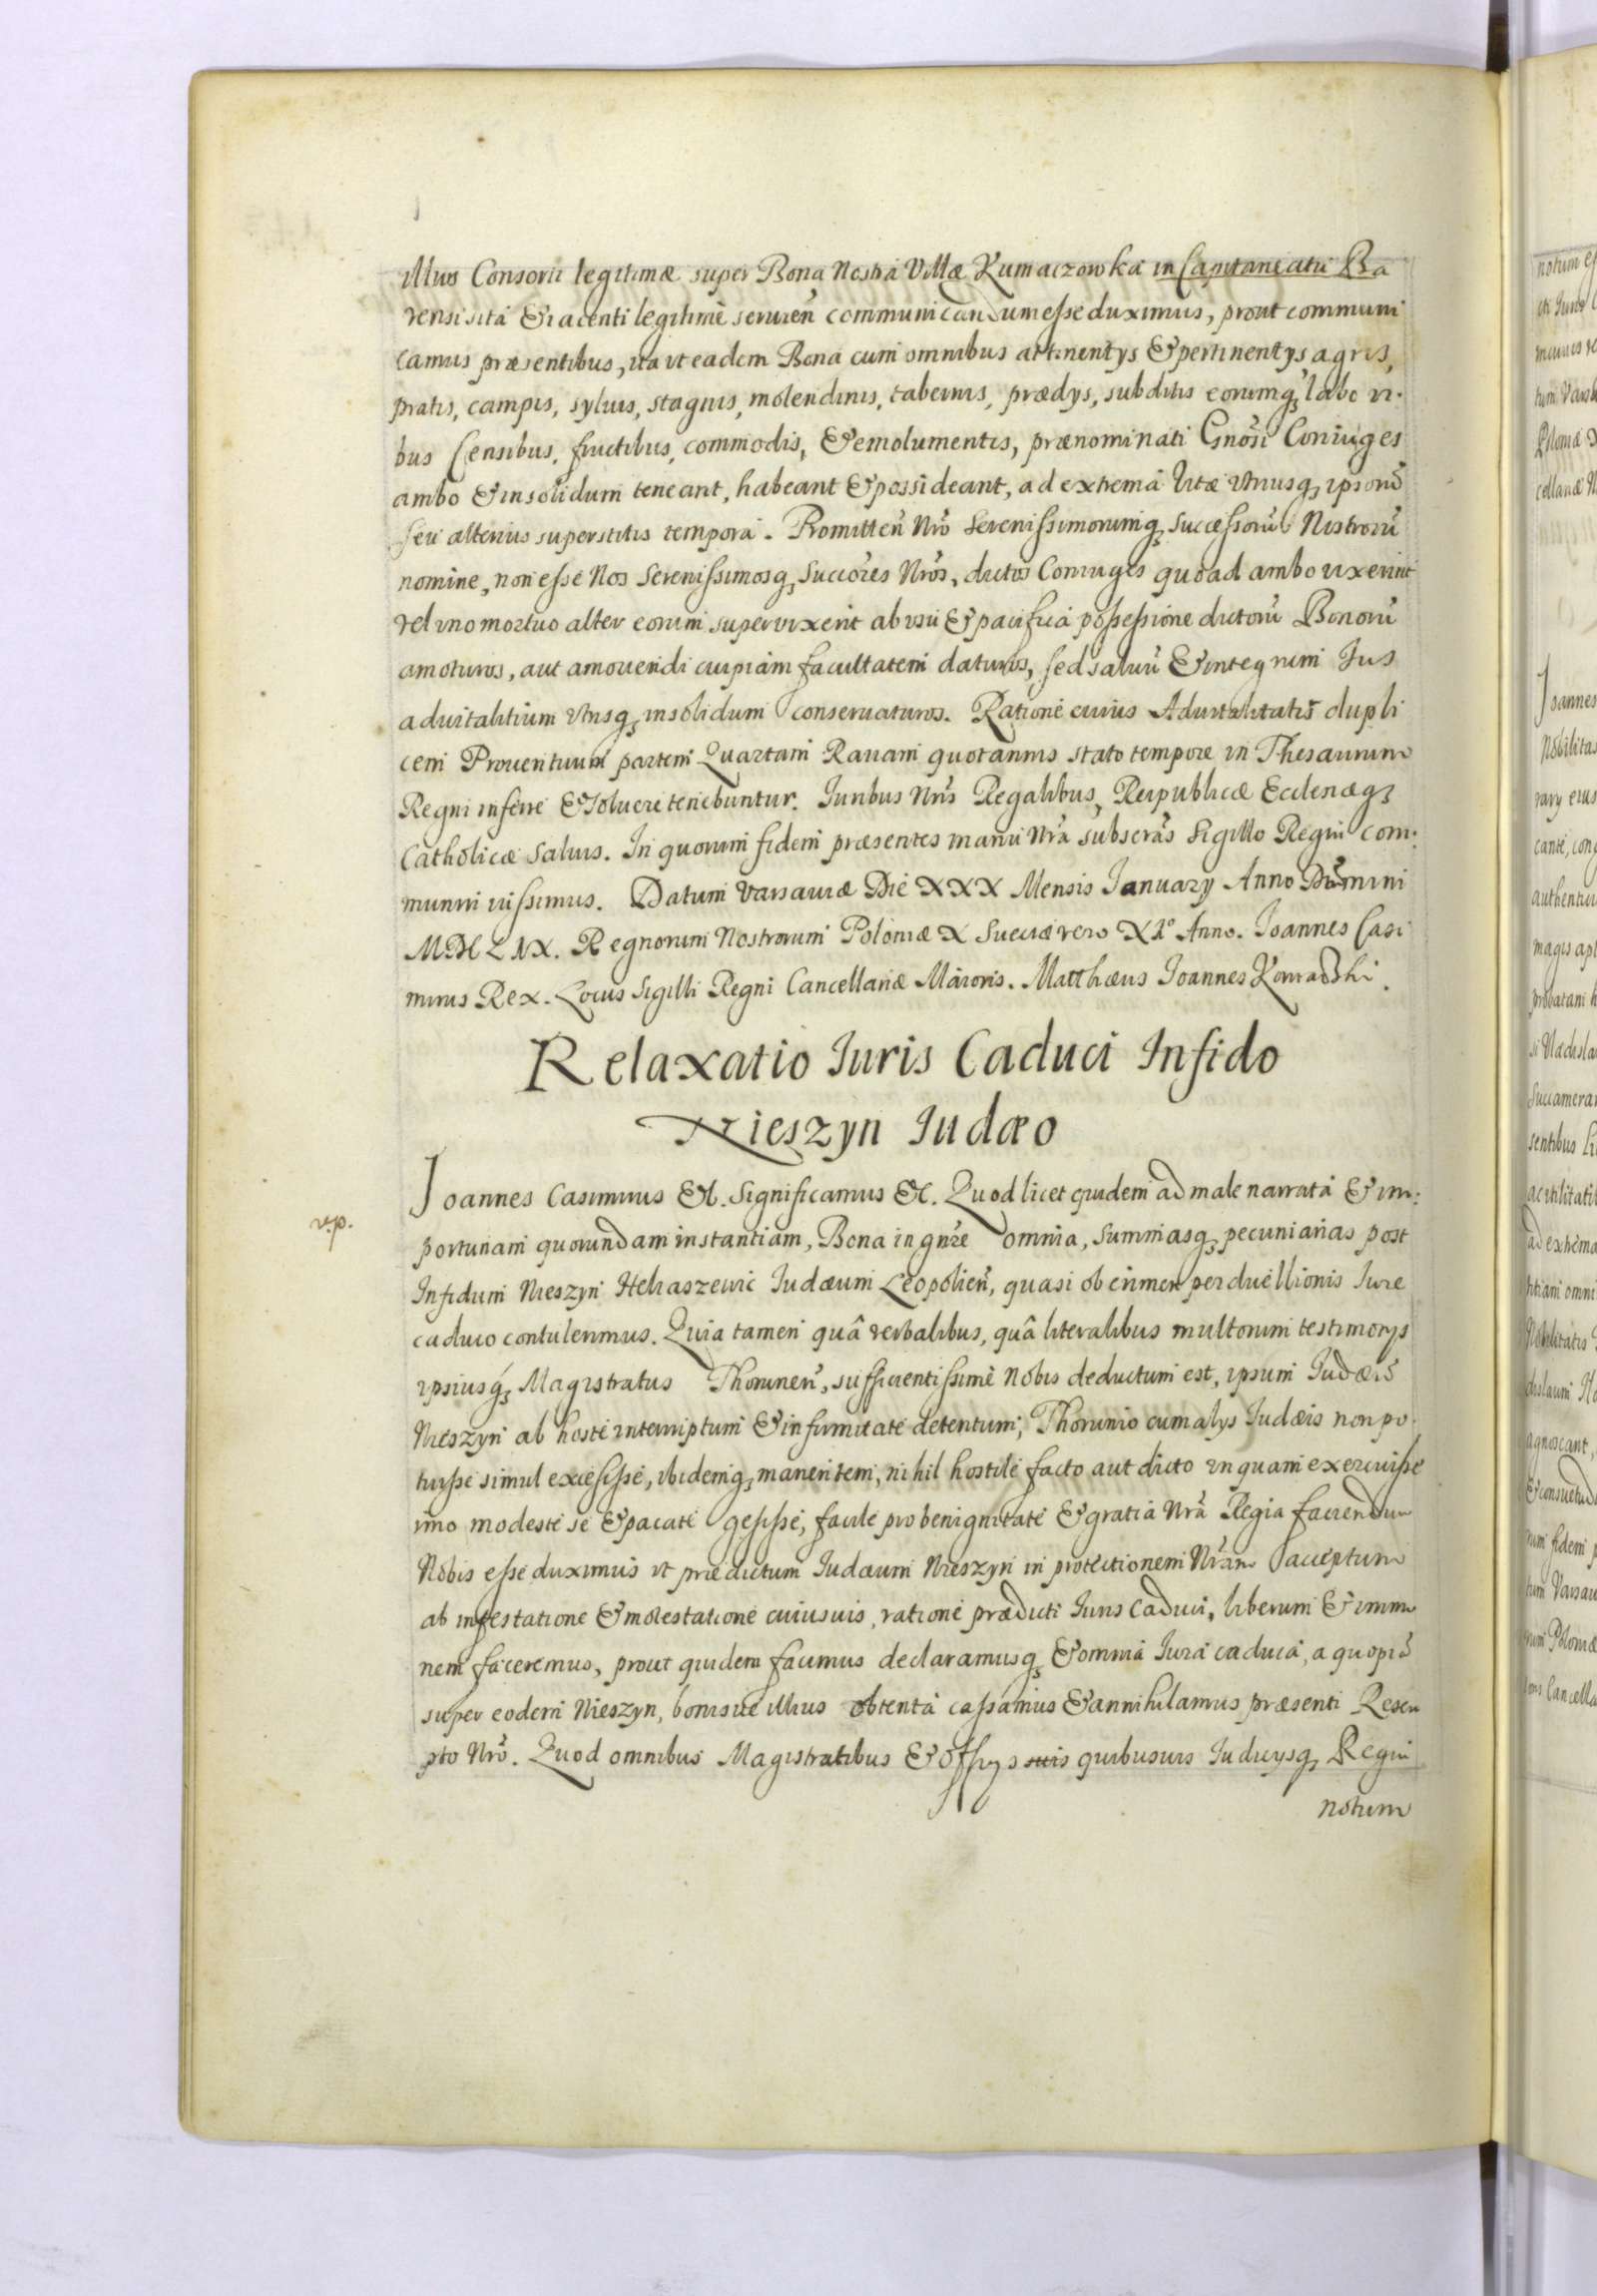 illius Consorti legitimæ super Bona Nostra Villæ Kumaczowka in Capitaneatu Ba
rensi sita & iacenti legitimè seruien̄ communicandum esse duximus, prout communi
camus præsentibus, ita vt eadem Bona cum omnibus attinentijs & pertinentijs agris,
pratis, campis, syluis, stagnis, molendinis, tabernis, prædys, subditis eorumq₃ labo ri.
bus Censibus, fructibus, commodis, & emolumentis, prænominati Gnōsi Coniuges
ambo & insolidum teneant, habeant & possideant, ad extrema vitæ vtriusq₃ ipsorū
seu alterius superstitis tempora. Promitten̄ Nrō Serenissimorumq₃ Successorū Nostrorū
nomine, non esse Nos Serenissimosq₃ Succōres Nrōs, dictos Coniuges quoad ambo vixerint
vel vno mortuo alter eorum supervixerit ab vsu & pacifica possessione dictorū Bonorū
amoturos, aut amouendi cuipiam facultatem daturos, sed saluū & integrum Ius
aduitalitium vtriusq₃ insolidum conseruaturos. Ratione cuius Aduitalitatis dupli
cem Prouentuum partem Quartam Rauam quotannis stato tempore in Thesaurum
Regni inferre & soluere tenebuntur. Iuribus Nrīs Regalibus, Reipublicæ Ecclesiæq₃
Catholicæ saluis. In quorum fidem præsentes manu Nrā subscrās Sigillo Regni com:
muniri iussimus. Datum Varsauiæ Die XXX Mensis January Anno Domini
MDCLIX. Regnorum Nostrorum Poloniæ X Sueciæ vero XIº Anno. Ioannes Casi
mirus Rex. Locus Sigilli Regni Cancellariæ Maioris. Matthæus Ioannes Komadzki.
Relaxatio Iuris Caduci Infido
Nieszyn Iudæo
v.p.
Ioannes Casimirus &c. Significamus &c. Quod licet quidem ad male narratā & im:
portunam quorundam instantiam, Bona in gnr̄e omnia, summasq₃ pecuniarias post
Infidum Nieszyn Heliaszewic Iudæum Leopolien̄, quasi ob crimen perduellionis Iure
caduco contulerimus. Quia tamen quâ verbalibus, quâ literalibus multorum testimonijs
ipsiusq₃ Magistratus Thorunen̄, sufficientissimè Nobis deductum est, ipsum Iudæū
Nieszyn ab hoste interruptum & infirmitate detentum, Thorunio cum alys Iudæis non po.
tuisse simul excessisse, ibidemq₃ manentem, nihil hostile facto aut dicto inquam exercuisse
imo modeste se & pacate gessisse, facile pro benignitate & gratia Nrā Regia faciendum
Nobis esse duximus vt prædictum Iudæum Nieszyn in protectionem Nrām acceptum
ab infestatione & molestatione cuiusuis, ratione prædicti Iuris caduci, liberum & immu
nem faceremus, prout quidem facimus declaramusq₃ & omnia Iura caduca, a quopiā
super eodem Nieszyn, bonisue illius obtenta cassamus & annihilamus præsenti Rescri
pto Nrō. Quod omnibus Magistratibus & Offijs suis quibusuis Iudicysq₃ Regni
notum